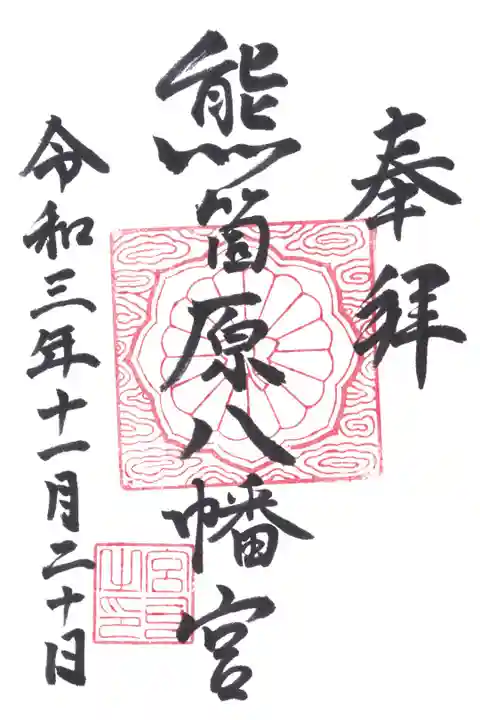 奉拝
熊箇原八幡宮
令和三年十一月二十日